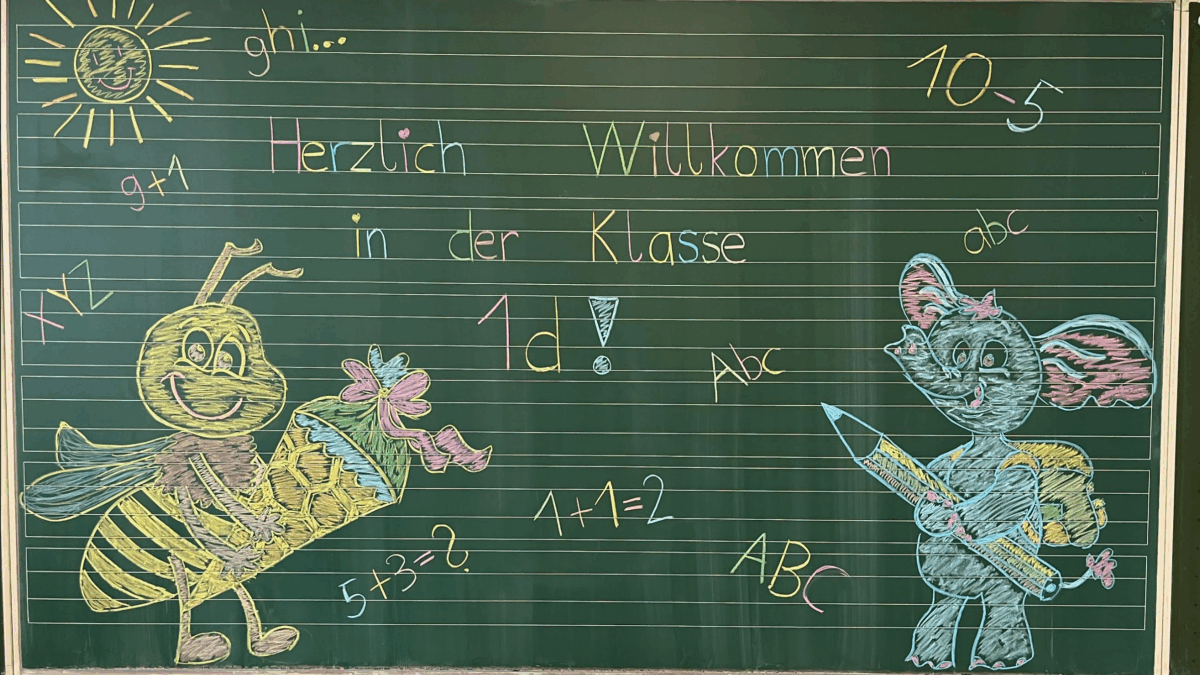 ghi...
10-5
Herzlich Willkommen
g+1
in der Klasse
abc
XYZ
1d!
Abc
1+1=2
5+3=?
ABC